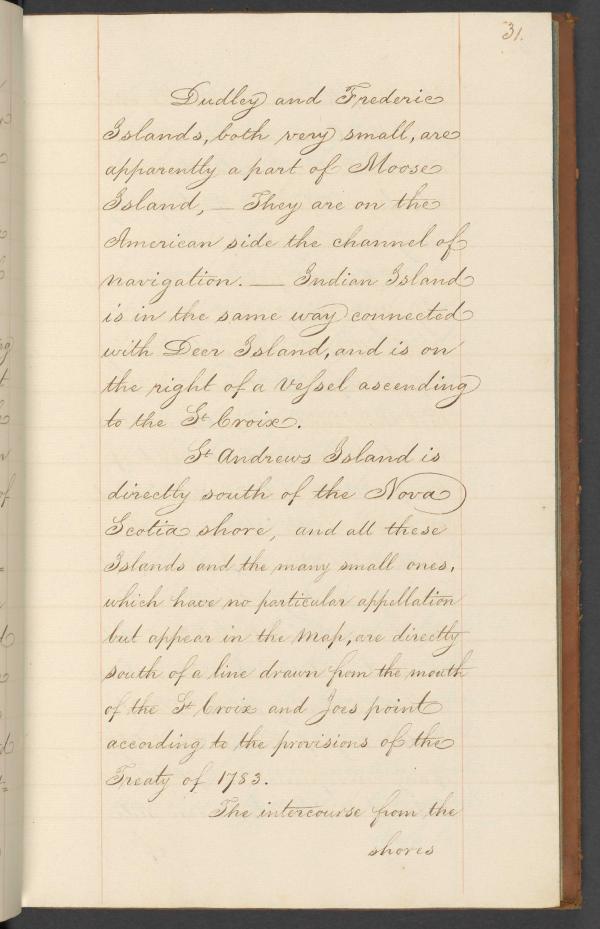 31.
Dudley and Frederic
Islands, both very small, are
apparently a part of Moose
Island, — They are on the
American side the channel of
navigation. — Indian Island
is in the same way connected
with Deer Island, and is on
the right of a Vessel ascending
to the St Croix.
St Andrews Island is
directly south of the Nova
Scotia shore, and all these
Islands and the many small ones,
which have no particular appellation
but appear in the Map, are directly
south of a line drawn from the mouth
of the St Croix and Joes point
according to the provisions of the
Treaty of 1783.
The intercourse from the
shores